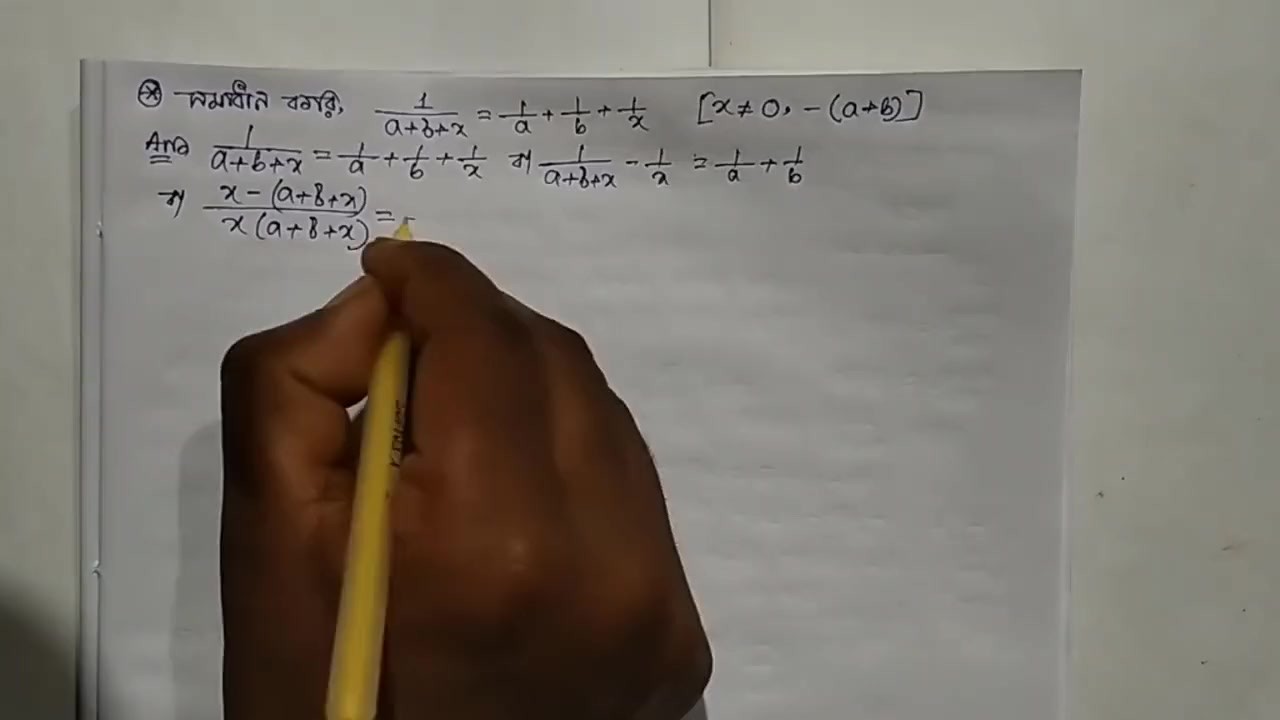 ⊛ সমাধান করি, 1/(a+b+x) = 1/a + 1/b + 1/x [x ≠ 0, -(a+b)]
Ans 1/(a+b+x) = 1/a + 1/b + 1/x বা 1/(a+b+x) - 1/x = 1/a + 1/b
বা (x - (a+b+x))/(x(a+b+x)) =